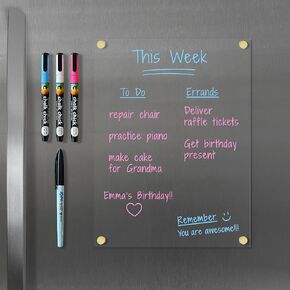 This Week
To Do
repair chair
practice piano
make cake
for Grandma
Emma's Birthday!!
Errands
Deliver
raffle tickets
Get birthday
present
Remember
You are awesome!!!
chalk
chalk
chalk